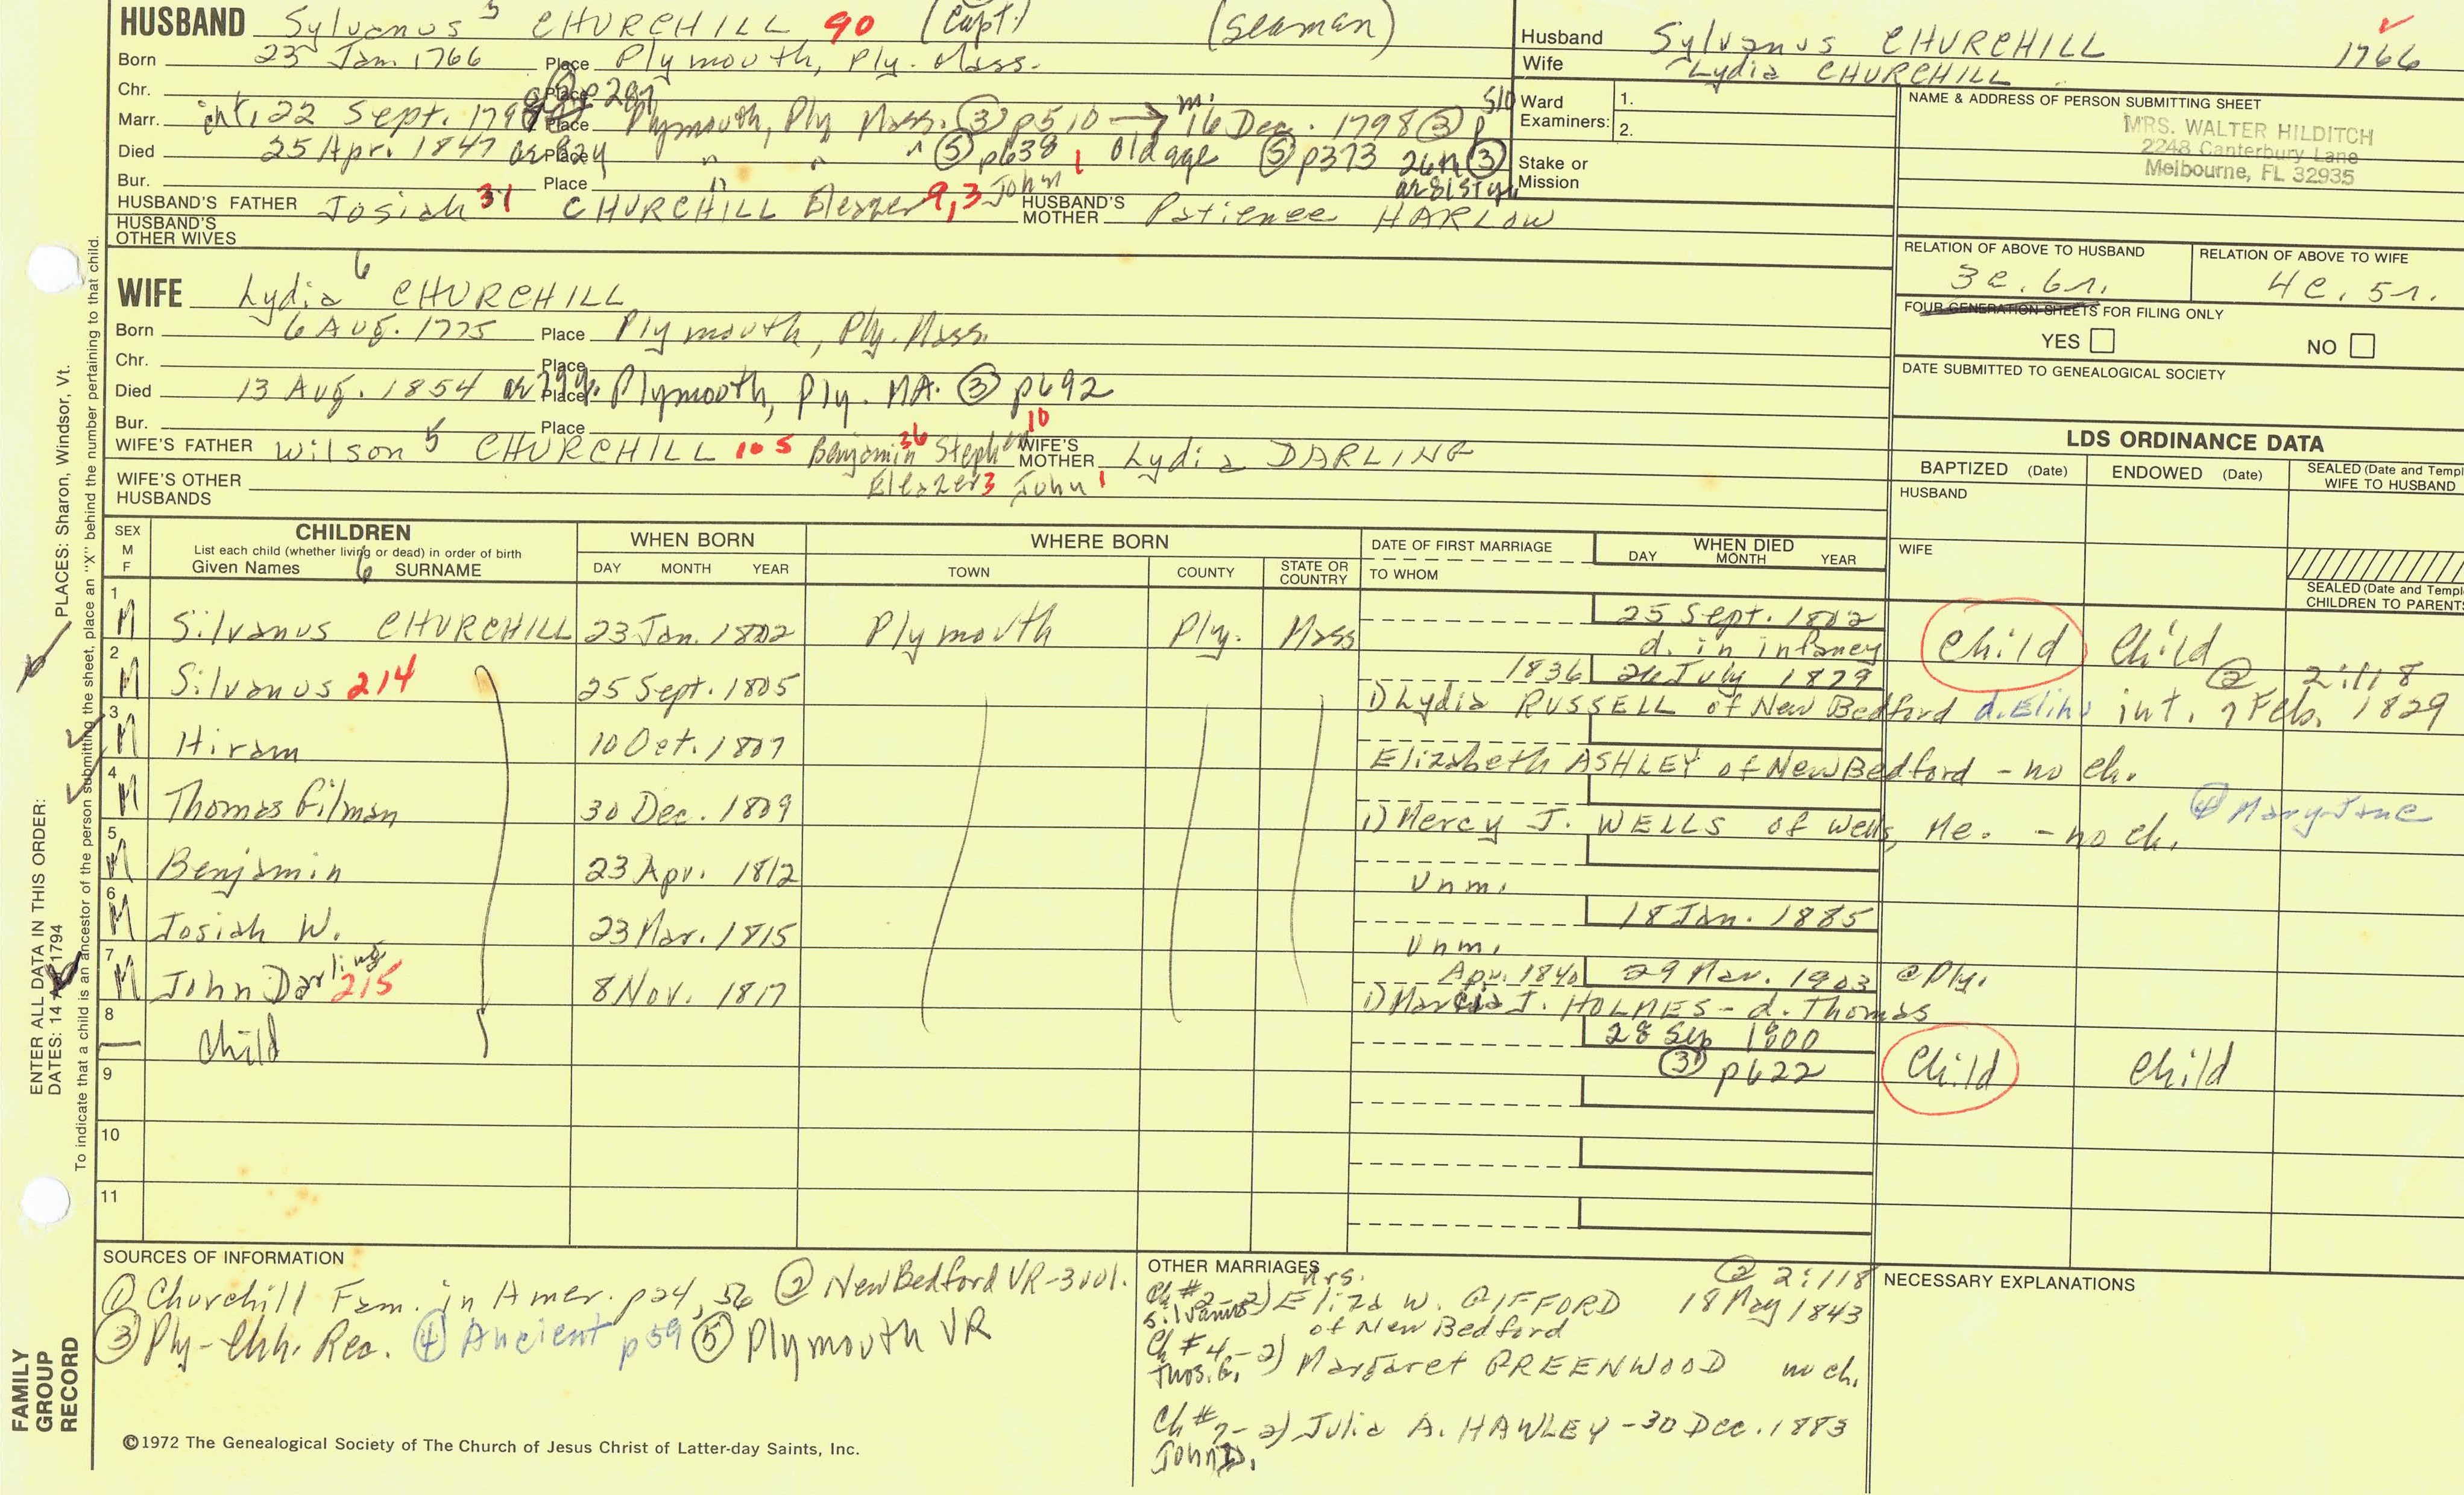 HUSBAND Sylvanus 5 CHURCHILL 90 (Capt.) (Seaman)
Born 23 Jan 1766 Place Plymouth, Ply. Mass.
Chr. Place
Marr. int. 22 Sept. Place Plymouth, Ply Mass. (3) p510 → m. 16 Dec. 1798 (3) p 510
Died 25 Apr. 1847 Place " " " (5) p638 old age (5) p373
Bur. Place "
HUSBAND'S FATHER Josiah 31 CHURCHILL Eleazer 9, 3 John 1 HUSBAND'S MOTHER Patience HARLOW
HUSBAND'S OTHER WIVES
WIFE Lydia 6 CHURCHILL
Born 6 Aug. 1775 Place Plymouth, Ply. Mass.
Chr. Place
Died 13 Aug. 1854 Place Plymouth, Ply. MA. (3) p692
Bur. Place
WIFE'S FATHER Wilson 5 CHURCHILL 105 Benjamin 36 Stephen 10 WIFE'S MOTHER Lydia DARLING
Eleazer 3 John 1
WIFE'S OTHER HUSBANDS
Husband Sylvanus CHURCHILL 1766
Wife Lydia CHURCHILL
Ward Examiners: 1.
2.
Stake or Mission
NAME & ADDRESS OF PERSON SUBMITTING SHEET
MRS. WALTER HILDITCH
2248 Canterbury Lane
Melbourne, FL 32935
RELATION OF ABOVE TO HUSBAND RELATION OF ABOVE TO WIFE
3c. 6r. 4c. 5r.
FOUR GENERATION SHEETS FOR FILING ONLY
YES NO
DATE SUBMITTED TO GENEALOGICAL SOCIETY
LDS ORDINANCE DATA
BAPTIZED (Date) ENDOWED (Date) SEALED (Date and Templ
WIFE TO HUSBAND
HUSBAND
WIFE
SEALED (Date and Templ
CHILDREN TO PARENTS
SEX M F CHILDREN WHEN BORN WHERE BORN DATE OF FIRST MARRIAGE WHEN DIED
List each child (whether living or dead) in order of birth
Given Names 6 SURNAME DAY MONTH YEAR TOWN COUNTY STATE OR COUNTRY TO WHOM DAY MONTH YEAR
1 M Silvanus CHURCHILL 23 Jan. 1802 Plymouth Ply. Mass 25 Sept. 1802 Child Child
d. in infancy
2 M Silvanus 214 25 Sept. 1805 1836 26 July 1879 (2) 2:118
1) Lydia RUSSELL of New Bedford d. int. 7 Feb. 1829
3 M Hiram 10 Oct. 1807
Elizabeth ASHLEY of New Bedford - no ch.
4 M Thomas Gilman 30 Dec. 1809
1) Mercy J. WELLS of Wells, Me. - no ch. (4) Mary Jane
5 M Benjamin 23 Apr. 1812
Unm.
6 M Josiah W. 23 Mar. 1815 18 Jan. 1885
Unm.
7 M John Darling 215 8 Nov. 1817 Apr. 1840 29 Mar. 1903 @ Ply.
1) Marcia J. HOLMES - d. Thomas
8 — Child 28 Sep 1800 Child Child
(3) p622
9
10
11
SOURCES OF INFORMATION
(1) Churchill Fam. in Amer. p24, 56 (2) New Bedford VR-3vol.
(3) Ply-Chh. Rec. (4) Ancient p59 (5) Plymouth VR
OTHER MARRIAGES
Ch #2 - 2) Mrs. Eliza W. GIFFORD (2) 2:118
Silvanus of New Bedford 18 May 1843
Ch #4 - 2) Margaret GREENWOOD no ch.
Thos. G.
Ch #7 - 2) Julia A. HAWLEY - 30 Dec. 1883
John D.
NECESSARY EXPLANATIONS
©1972 The Genealogical Society of The Church of Jesus Christ of Latter-day Saints, Inc.
FAMILY GROUP RECORD
ENTER ALL DATA IN THIS ORDER:
DATES: 14 1794
PLACES: Sharon, Windsor, Vt.
To indicate that a child is an ancestor of the person submitting the sheet, place an "X" behind the number pertaining to that child.